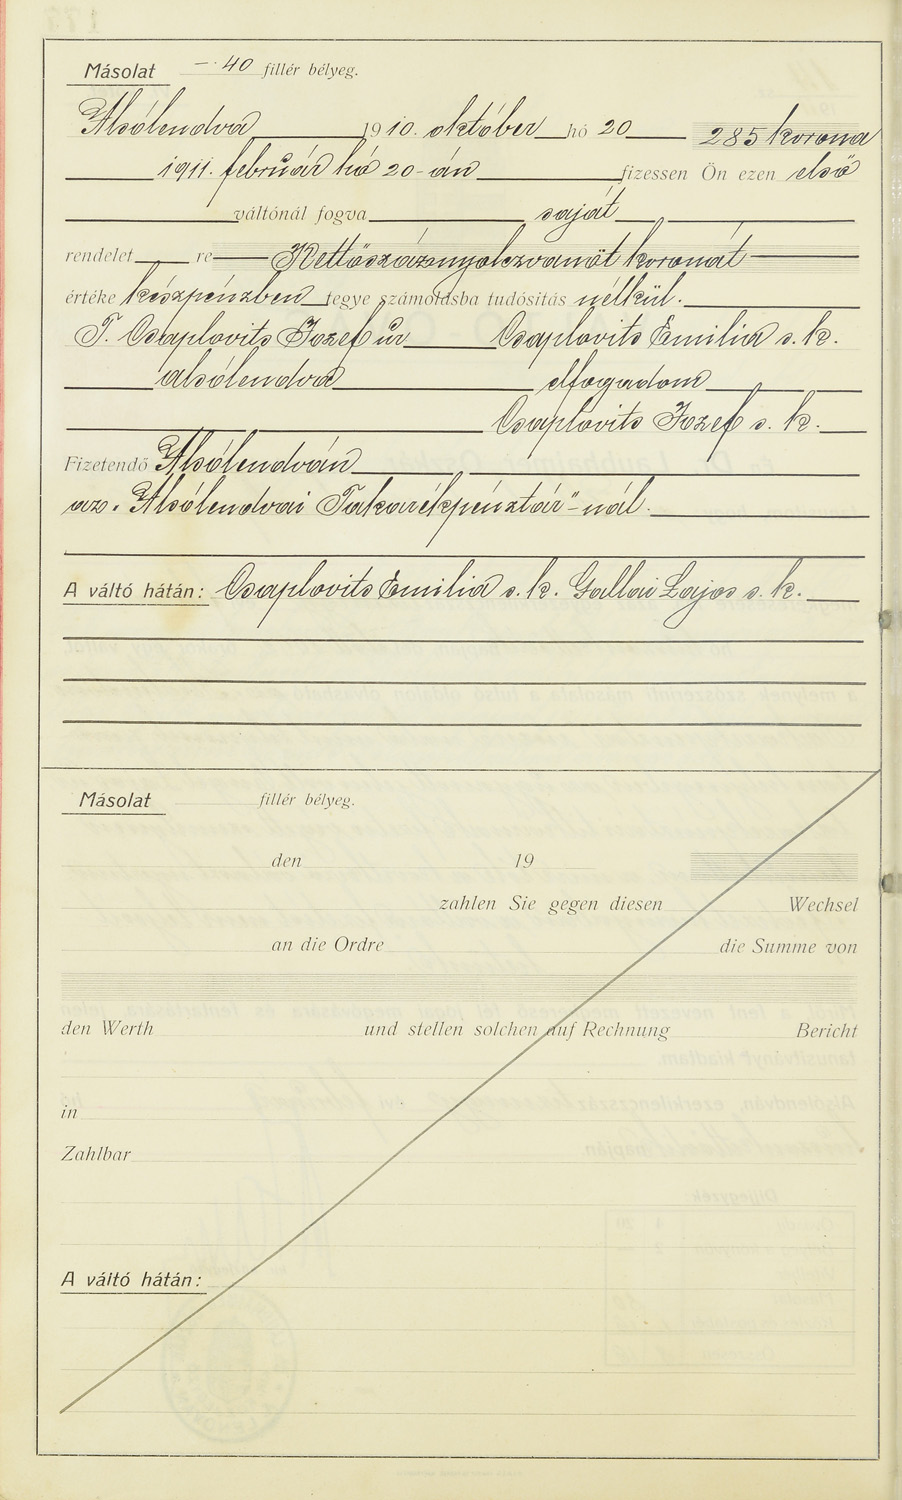 Másolat –·40 fillér bélyeg.
Alsólendva 1910. október hó 20 285 korona
1911. február hó 20-án fizessen Ön ezen első
váltónál fogva saját
rendelet re Kettőszáznyolczvanöt koronát
értéke készpénzben tegye számolásba tudósitás nélkül.
T. Csaplovits József úr Csaplovits Emilia s. k.
alsólendva elfogadom
Csaplovits József s. k.
Fizetendő Alsólendván
az „Alsólendvai Takarékpénztár"-nál.
A váltó hátán: Csaplovits Emilia s. k. Gallai Lajos s. k.
Másolat fillér bélyeg.
den 19
zahlen Sie gegen diesen Wechsel
an die Ordre die Summe von
den Werth und stellen solchen auf Rechnung Bericht
in
Zahlbar
A váltó hátán: